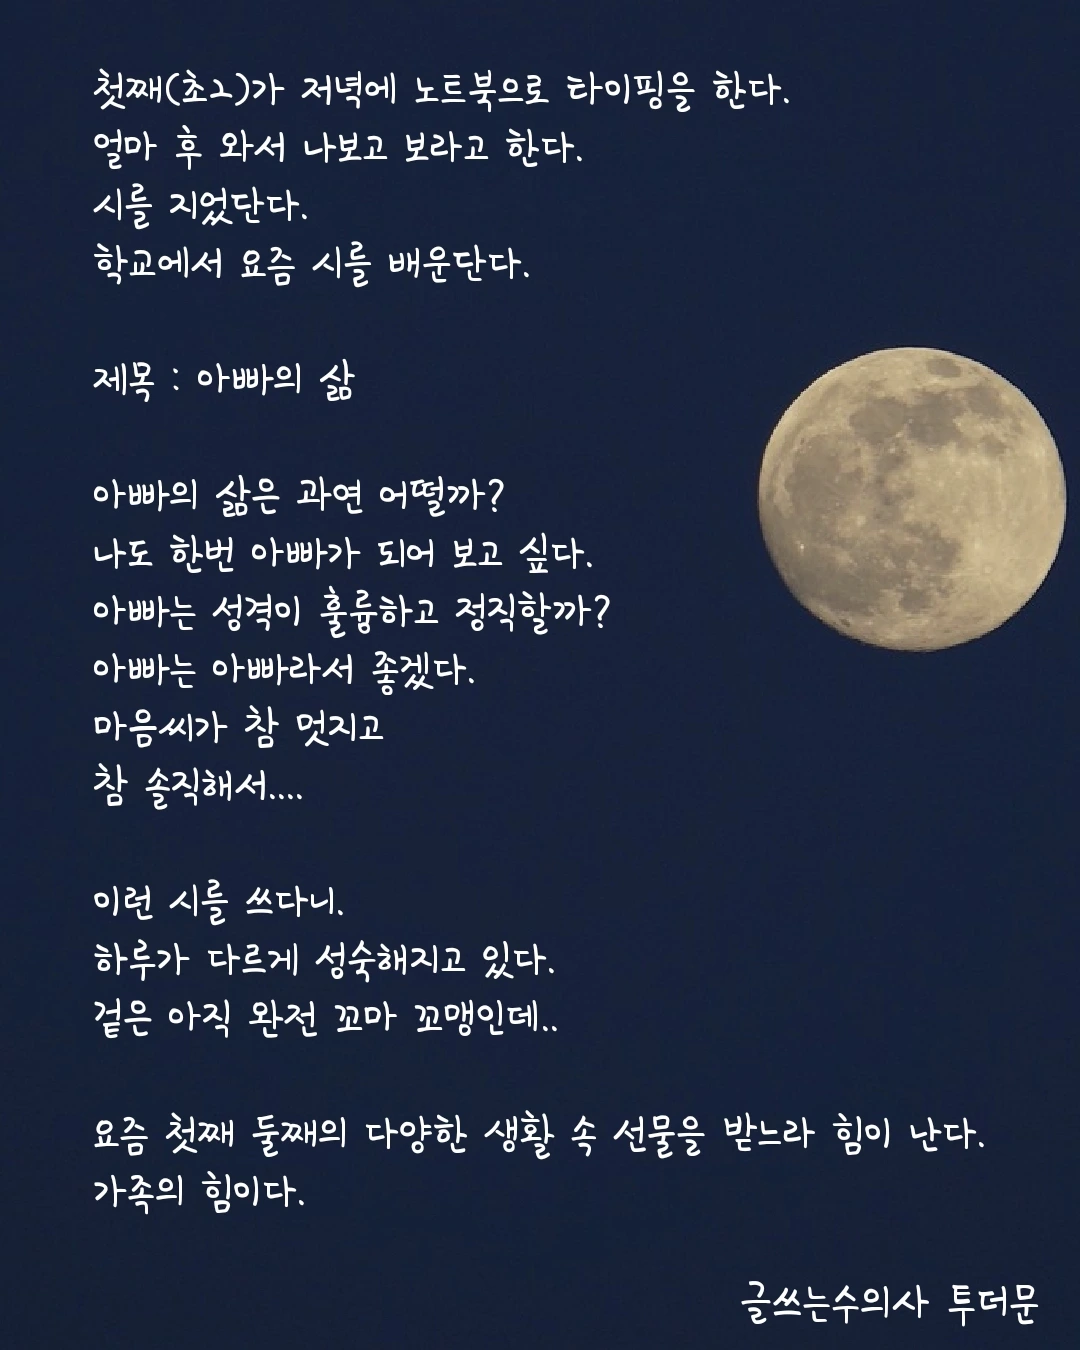 첫째(초2)가 저녁에 노트북으로 타이핑을 한다.
얼마 후 와서 나보고 보라고 한다.
시를 지었단다.
학교에서 요즘 시를 배운단다.
제목 : 아빠의 삶
아빠의 삶은 과연 어떨까?
나도 한번 아빠가 되어 보고 싶다.
아빠는 성격이 훌륭하고 정직할까?
아빠는 아빠라서 좋겠다.
마음씨가 참 멋지고
참 솔직해서....
이런 시를 쓰다니.
하루가 다르게 성숙해지고 있다.
겉은 아직 완전 꼬마 꼬맹인데..
요즘 첫째 둘째의 다양한 생활 속 선물을 받느라 힘이 난다.
가족의 힘이다.
글쓰는수의사 투더문